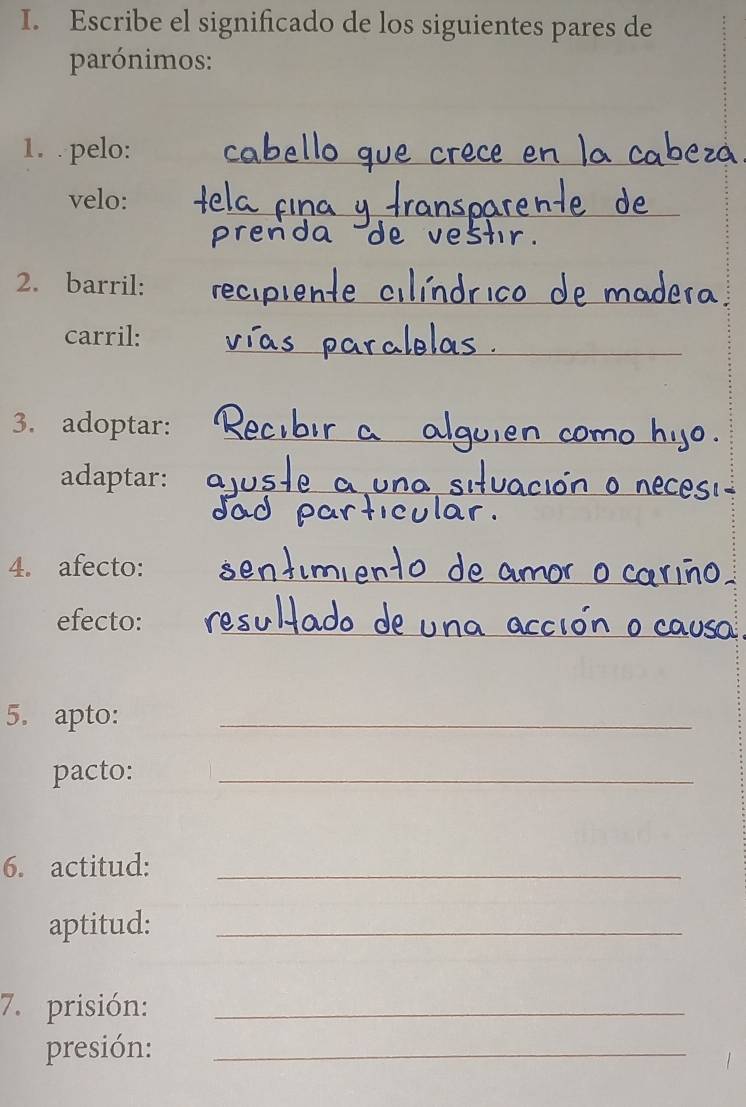 I. Escribe el significado de los siguientes pares de
parónimos:
1. pelo: cabello que crece en la cabeza.
velo: tela fina y transparente de
prenda de vestir.
2. barril: recipiente cilíndrico de madera.
carril: vías paralelas.
3. adoptar: Recibir a alguien como hijo.
adaptar: ajuste a una situación o necesi-
dad particular.
4. afecto: sentimiento de amor o cariño.
efecto: resultado de una acción o causa.
5. apto:
pacto:
6. actitud:
aptitud:
7. prisión:
presión: